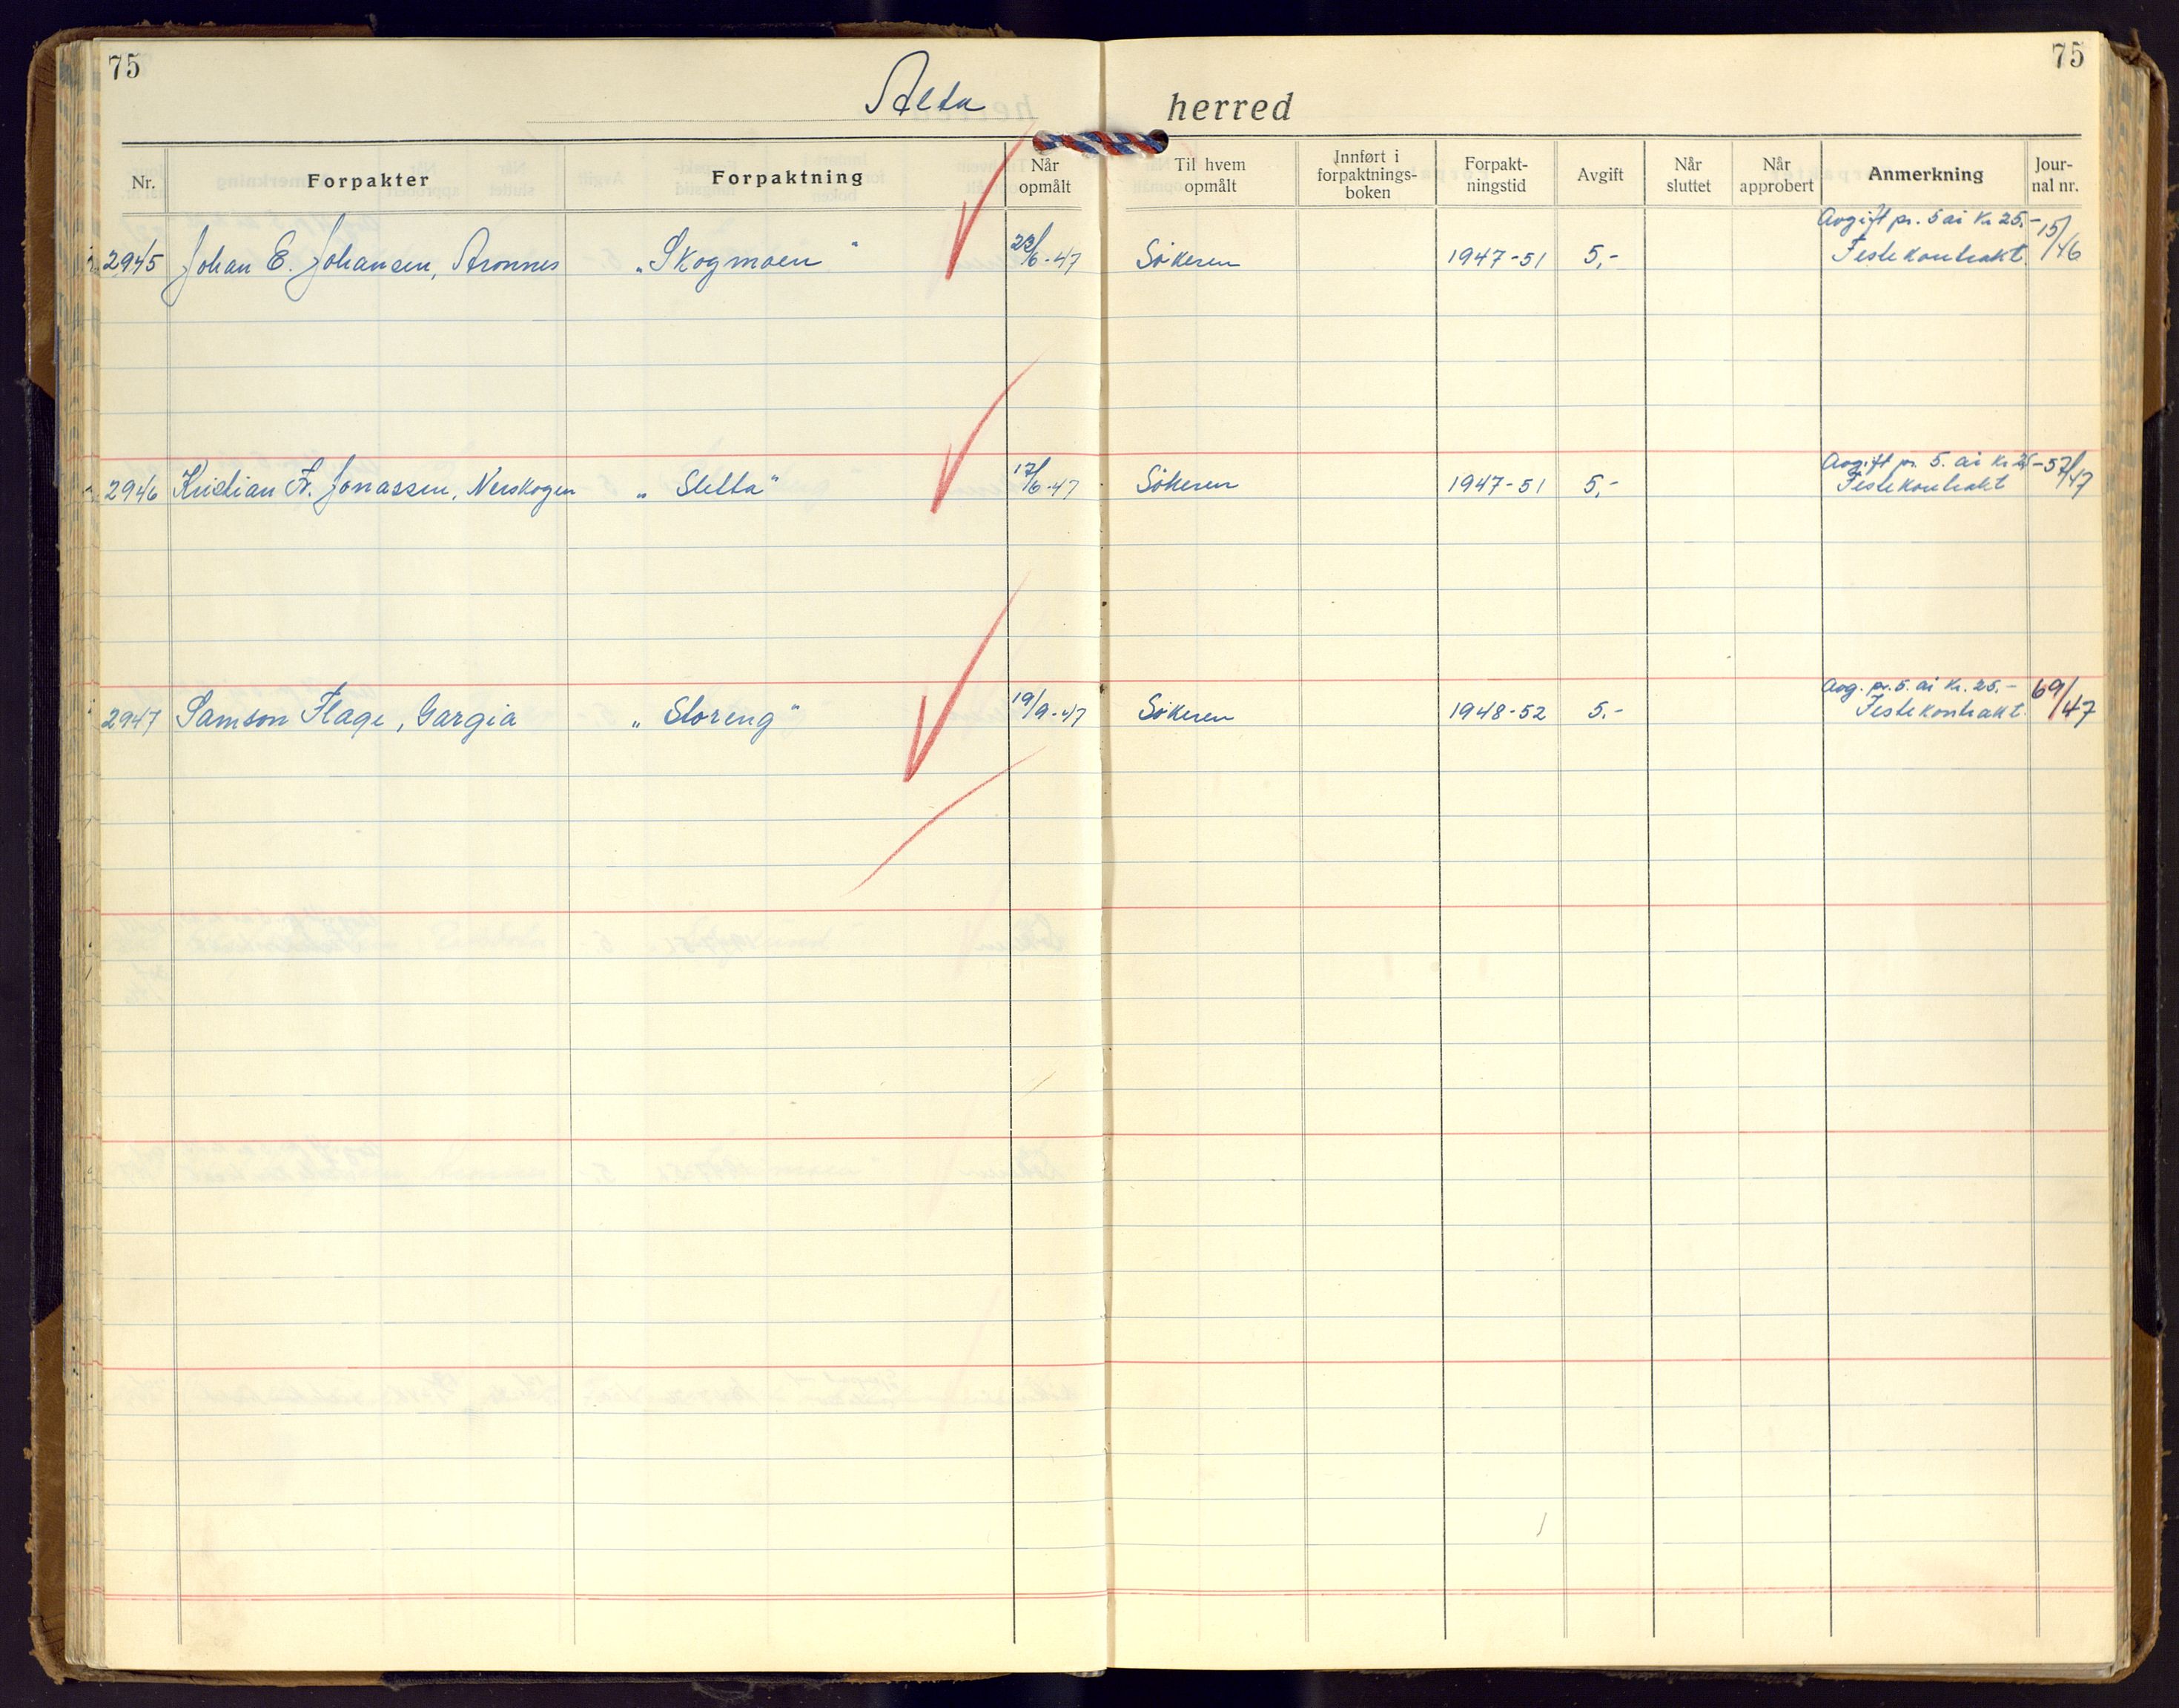 75
75
Alta herred
Nr. Forpakter Forpaktning Når opmålt Til hvem opmålt Innført i forpaktnings-boken Forpakt-ningstid Avgift Når sluttet Når approbert Anmerkning Jour-nal nr.
Avgift pr. 5 år Kr 25,-
2945 Johan E. Johansen, Aronnes "Skogmoen" 23/6-47 Søkeren 1947-51 5,- Festekontrakt. 15/46
Avgift pr. 5. år Kr 25,-
2946 Kristian Fr. Jonassen, Nerskogen "Sletta" 17/6-47 Søkeren 1947-51 5,- Festekontrakt 57/47
Avg. pr. 5. år Kr. 25,-
2947 Samson Hage, Gargia "Storeng" 19/9-47 Søkeren 1948-52 5.- Festekontrakt. 69/47